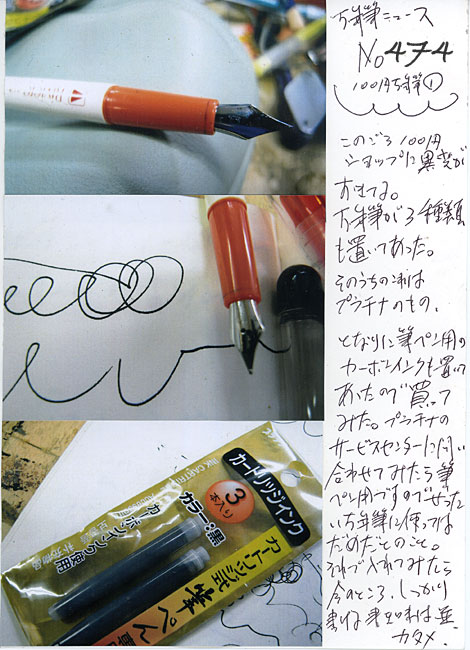 万年筆ニュース
No 474
100円万年筆①
このごろ 100円
ショップに異変が
おきてる。
万年筆が3種類
も置いてあった。
そのうちの1本は
プラチナのもの。
となりに筆ペン用の
カーボンインクも置いて
あったので買って
みた。プラチナの
サービスセンターに問い
合わせてみたら筆
ペン用ですのでぜったい
万年筆に使っては
だめだとのこと。
それで入れてみたら
今のところ、しっかり
カタメ.
カートリッジインク
3
本入り
カラー:黒
カーボンインク使用
カートリッジ式
筆ぺん専用